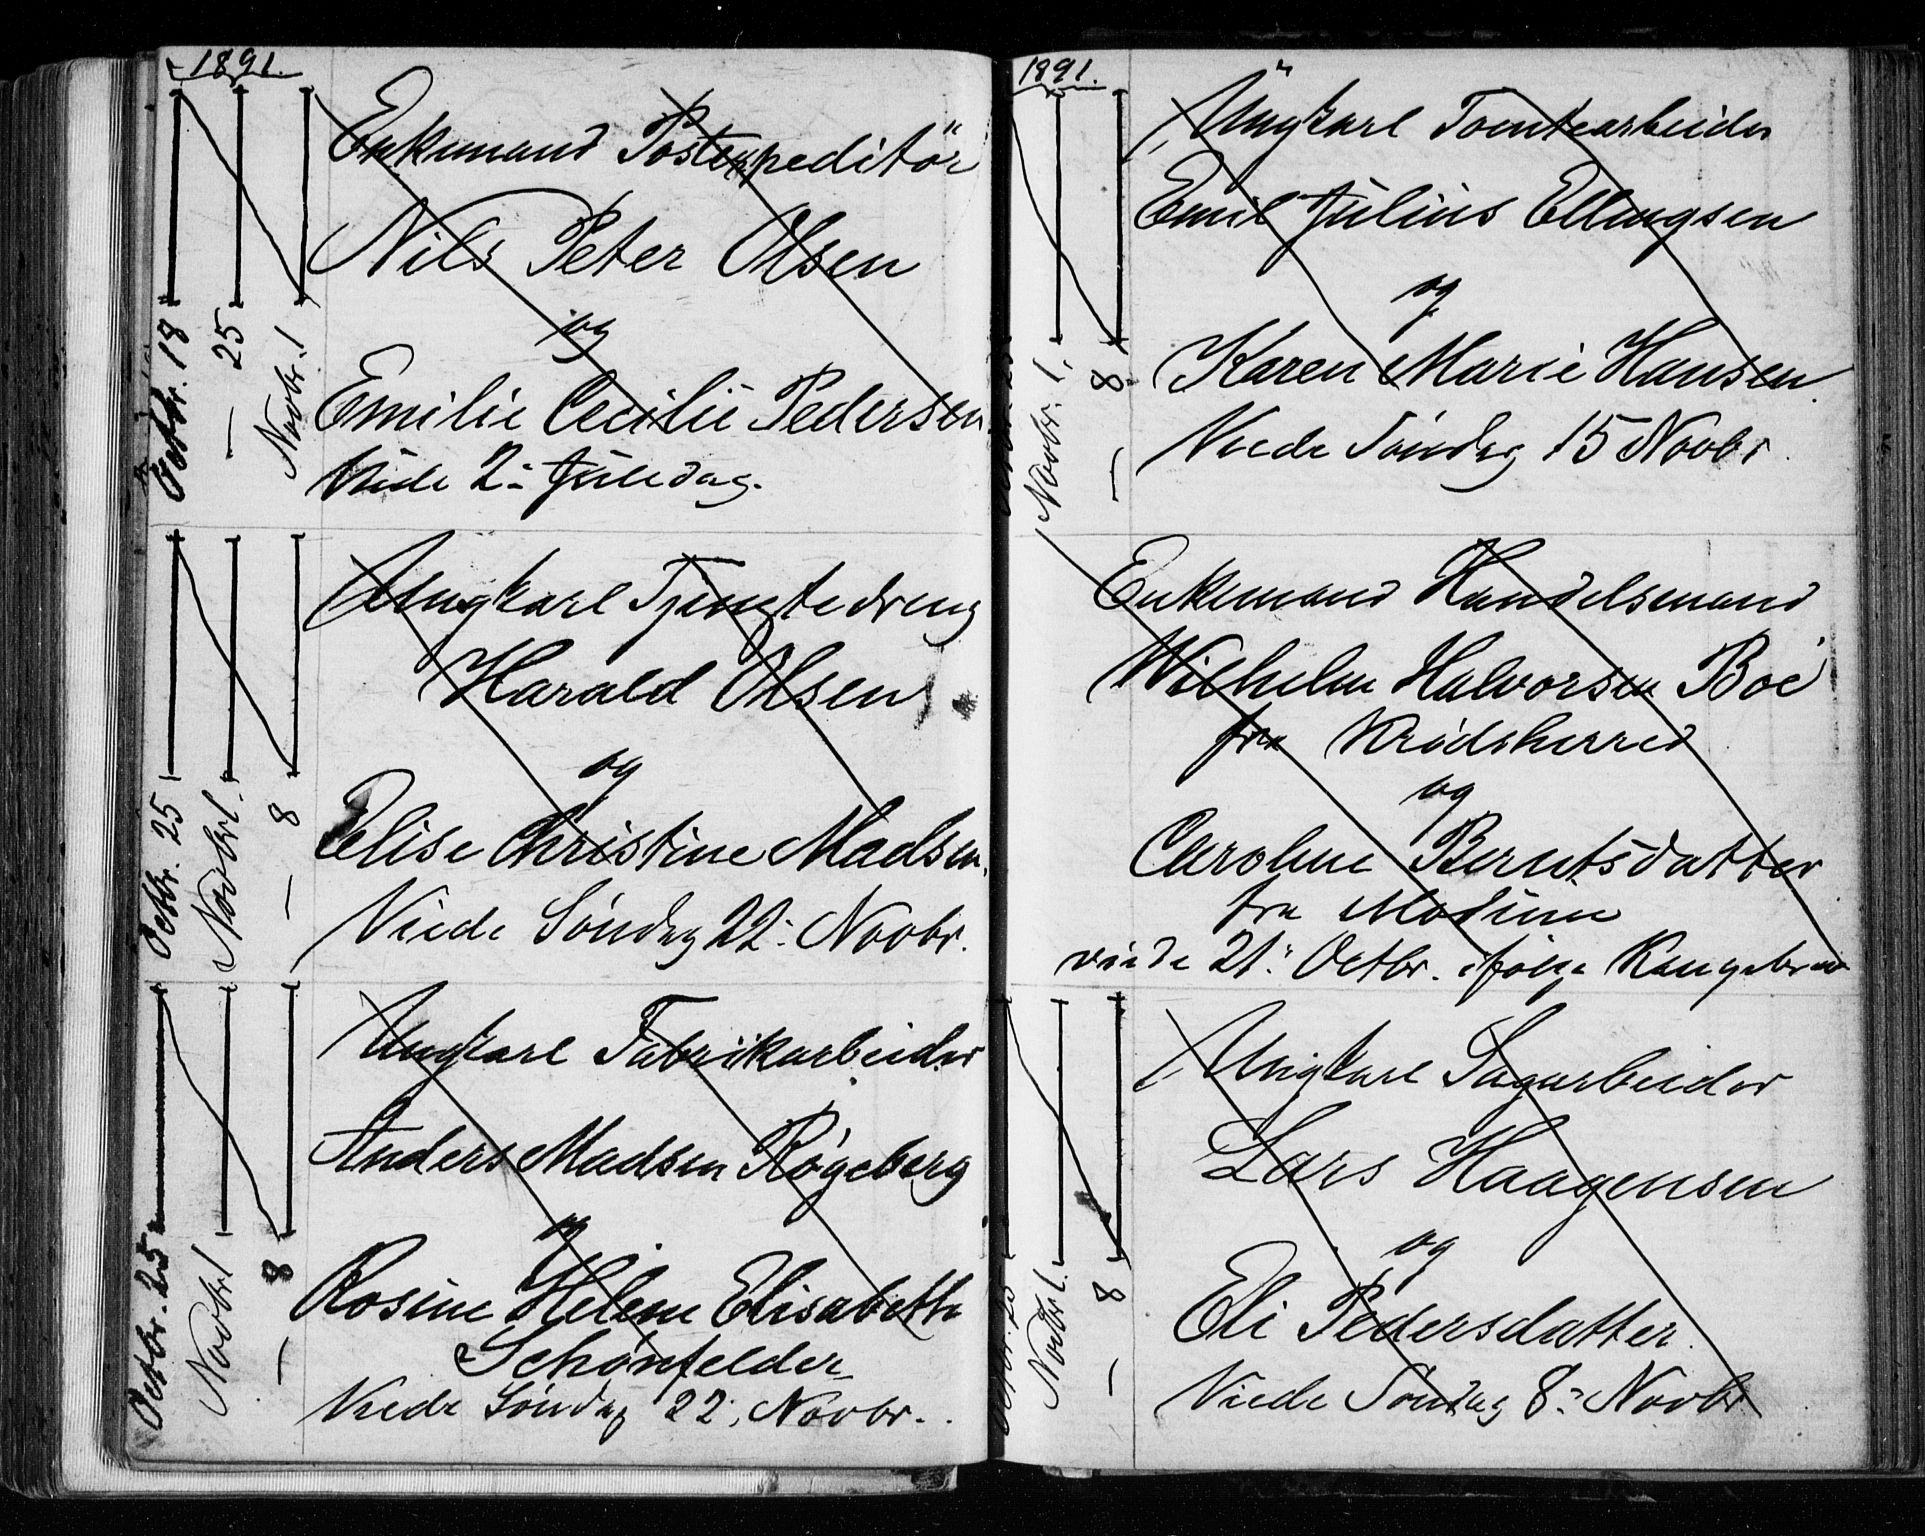 1891.
Octbr. 18
— 25
Novbr. 1
Enkemand Postexpeditör
Nils Peter Olsen
og
Emilie Cecilie Pedersen
Viede 2: Juledag.
Octbr. 25
Novbr 1.
— 8
Ungkarl Tjenestedreng
Harald Olsen
og
Elise Christine Madsen.
Viede Söndag 22: Novbr.
Octbr. 25
Novbr 1
— 8
Ungkarl Fabrikarbeider
Anders Madsen Røgeberg
og
Rosine Helene Elisabeth
Schönfelder
Viede Söndag 22: Novbr.
1891.
Novbr. 1.
— 8
Ungkarl Tomtearbeider
Emil Julius Ellingsen
og
Karen Marie Hansen.
Viede Söndag 15 Novbr.
Enkemand Handelsmand
Wilhelm Halvorsen Boe
fra Krødsherred
og
Caroline Berntsdatter
fra Modum
viede 21: Octbr. ifølge Kongebrev
Octbr. 25
Novbr 1.
— 8
Ungkarl Sagarbeider
Lars Haagensen
og
Eli Pedersdatter.
Viede Söndag 8: Novbr